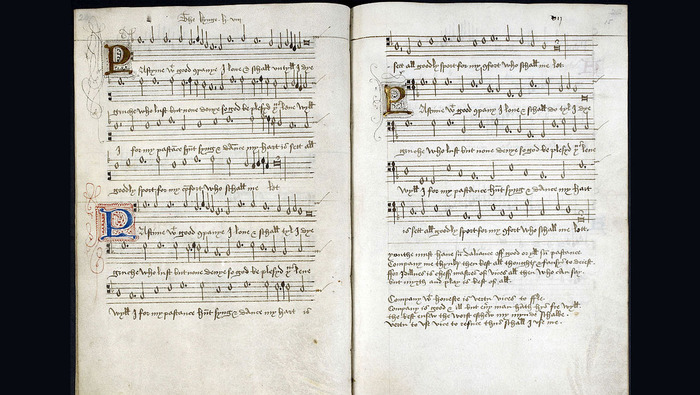 The kynge h viij
Pastyme wt good 9panye I love & schall untyll I dye
gruche who lust but none denye so god be plesyd þus leve wyll
I for my pastance hunt syng & dance my hart is sett all
goodly sport for my cōfort who schall me let
Pastyme wt good 9panye I love & schall tyl I dye
gruche who lust but none denye so god be plesyd þus leve
wyll I for my pastance hunt syng & dance my hart is
15
sett all goodly sport for my 9fort who schall me let
Pastyme wt good 9pany I love & schall do tyl I dye
gruche who lust but none denye so god be plesyd þus leve
wyll I for my pastance hunt syng & dance my hart
is sett all goodly sport for my 9fort who schall me lett.
youthe must have sū daliance off good or yll sū pastance.
Company me thynk then best all & fansys to deiest.
ffor Idillnes is cheff mastres of vices all then who can say.
but myrth and play is best of all.
Company wt honeste is vertu vices to ffle.
Company is good & ill but evry man hath hys fre wyll.
the best ensew the worst eschew my mynde schalbe.
vertu to use vice to refuse thus schall I use me.